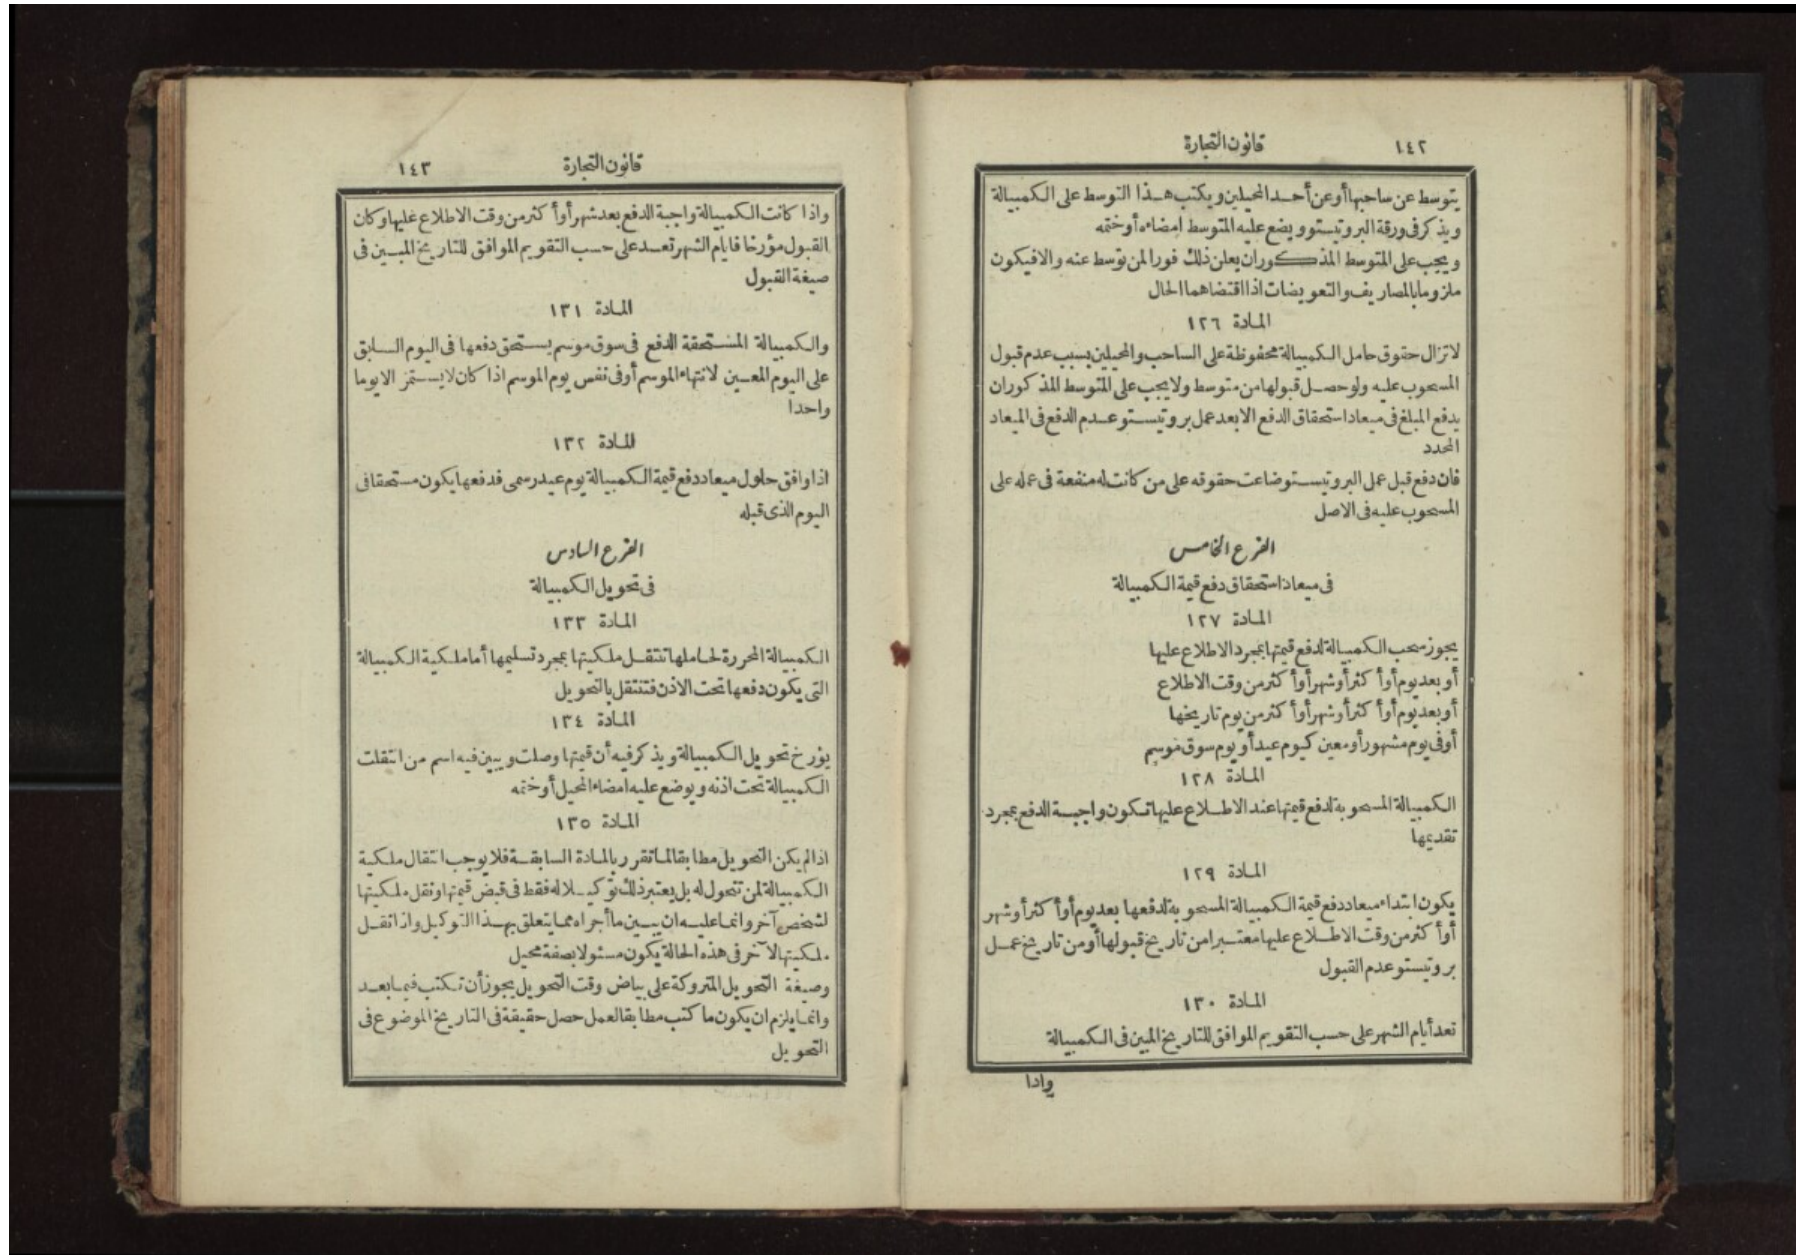 ١٤٢
قانون التجارة
يتوسط عن ساحبها أو عن أحد المحيلين ويكتب هذا التوسط على الكمبيالة
ويذكر فى ورقة البروتيستو ويضع عليه المتوسط امضاءه أو ختمه
ويجب على المتوسط المذكور ان يعلن ذلك فورا لمن توسط عنه والا فيكون
ملزوما بالمصاريف والتعويضات اذا اقتضاهما الحال
المادة ١٢٦
لا تزال حقوق حامل الكمبيالة محفوظة على الساحب والمحيلين بسبب عدم قبول
المسحوب عليه ولو حصل قبولها من متوسط ولا يجب على المتوسط المذكور ان
يدفع المبلغ فى ميعاد استحقاق الدفع الا بعد عمل بروتيستو عدم الدفع فى الميعاد
المحدد
فان دفع قبل عمل البروتيستو ضاعت حقوقه على من كانت له منفعة فى عمله على
المسحوب عليه فى الاصل
الفرع الخامس
فى ميعاد استحقاق دفع قيمة الكمبيالة
المادة ١٢٧
يجوز سحب الكمبيالة لدفع قيمتها بمجرد الاطلاع عليها
أو بعد يوم أو أكثر أو شهر أو أكثر من وقت الاطلاع
أو بعد يوم أو أكثر أو شهر أو أكثر من يوم تاريخها
أو فى يوم مشهور أو معين كيوم عيد أو يوم سوق موسم
المادة ١٢٨
الكمبيالة المسحوبة لدفع قيمتها عند الاطلاع عليها تكون واجبة الدفع بمجرد
تقديمها
المادة ١٢٩
يكون ابتداء ميعاد دفع قيمة الكمبيالة المسحوبة لدفعها بعد يوم أو أكثر أو شهر
أو أكثر من وقت الاطلاع عليها معتبرا من تاريخ قبولها أو من تاريخ عمل
بروتيستو عدم القبول
المادة ١٣٠
تعد أيام الشهر على حسب التقويم الموافق للتاريخ المبين فى الكمبيالة
واذا
قانون التجارة
١٤٣
واذا كانت الكمبيالة واجبة الدفع بعد شهر أو أكثر من وقت الاطلاع عليها وكان
القبول مؤرخا فايام الشهر تعد على حسب التقويم الموافق للتاريخ المبين فى
صيغة القبول
المادة ١٣١
والكمبيالة المستحقة الدفع فى سوق موسم يستحق دفعها فى اليوم السابق
على اليوم المعين لانتهاء الموسم أو فى نفس يوم الموسم اذا كان لا يستمر الا يوما
واحدا
المادة ١٣٢
اذا وافق حلول ميعاد دفع قيمة الكمبيالة يوم عيد رسمى فدفعها يكون مستحقا فى
اليوم الذى قبله
الفرع السادس
فى تحويل الكمبيالة
المادة ١٣٣
الكمبيالة المحررة لحاملها تنتقل ملكيتها بمجرد تسليمها أما ملكية الكمبيالة
التى يكون دفعها تحت الاذن فتنتقل بالتحويل
المادة ١٣٤
يؤرخ تحويل الكمبيالة ويذكر فيه أن قيمتها وصلت ويبين فيه اسم من انتقلت
الكمبيالة تحت اذنه ويوضع عليه امضاء المحيل أو ختمه
المادة ١٣٥
اذا لم يكن التحويل مطابقا لما تقرر بالمادة السابقة فلا يوجب انتقال ملكية
الكمبيالة لمن تتحول له بل يعتبر ذلك توكيلا له فقط فى قبض قيمتها ونقل ملكيتها
لشخص آخر وانما عليه ان يبين ما أجراه مما يتعلق بهذا التوكيل واذا نقل
ملكيتها لآخر فى هذه الحالة يكون مسئولا بصفة محيل
وصيغة التحويل المتروكة على بياض وقت التحويل يجوز أن تكتب فيما بعد
وانما يلزم ان يكون ما كتب مطابقا لعمل حصل حقيقة فى التاريخ الموضوع فى
التحويل